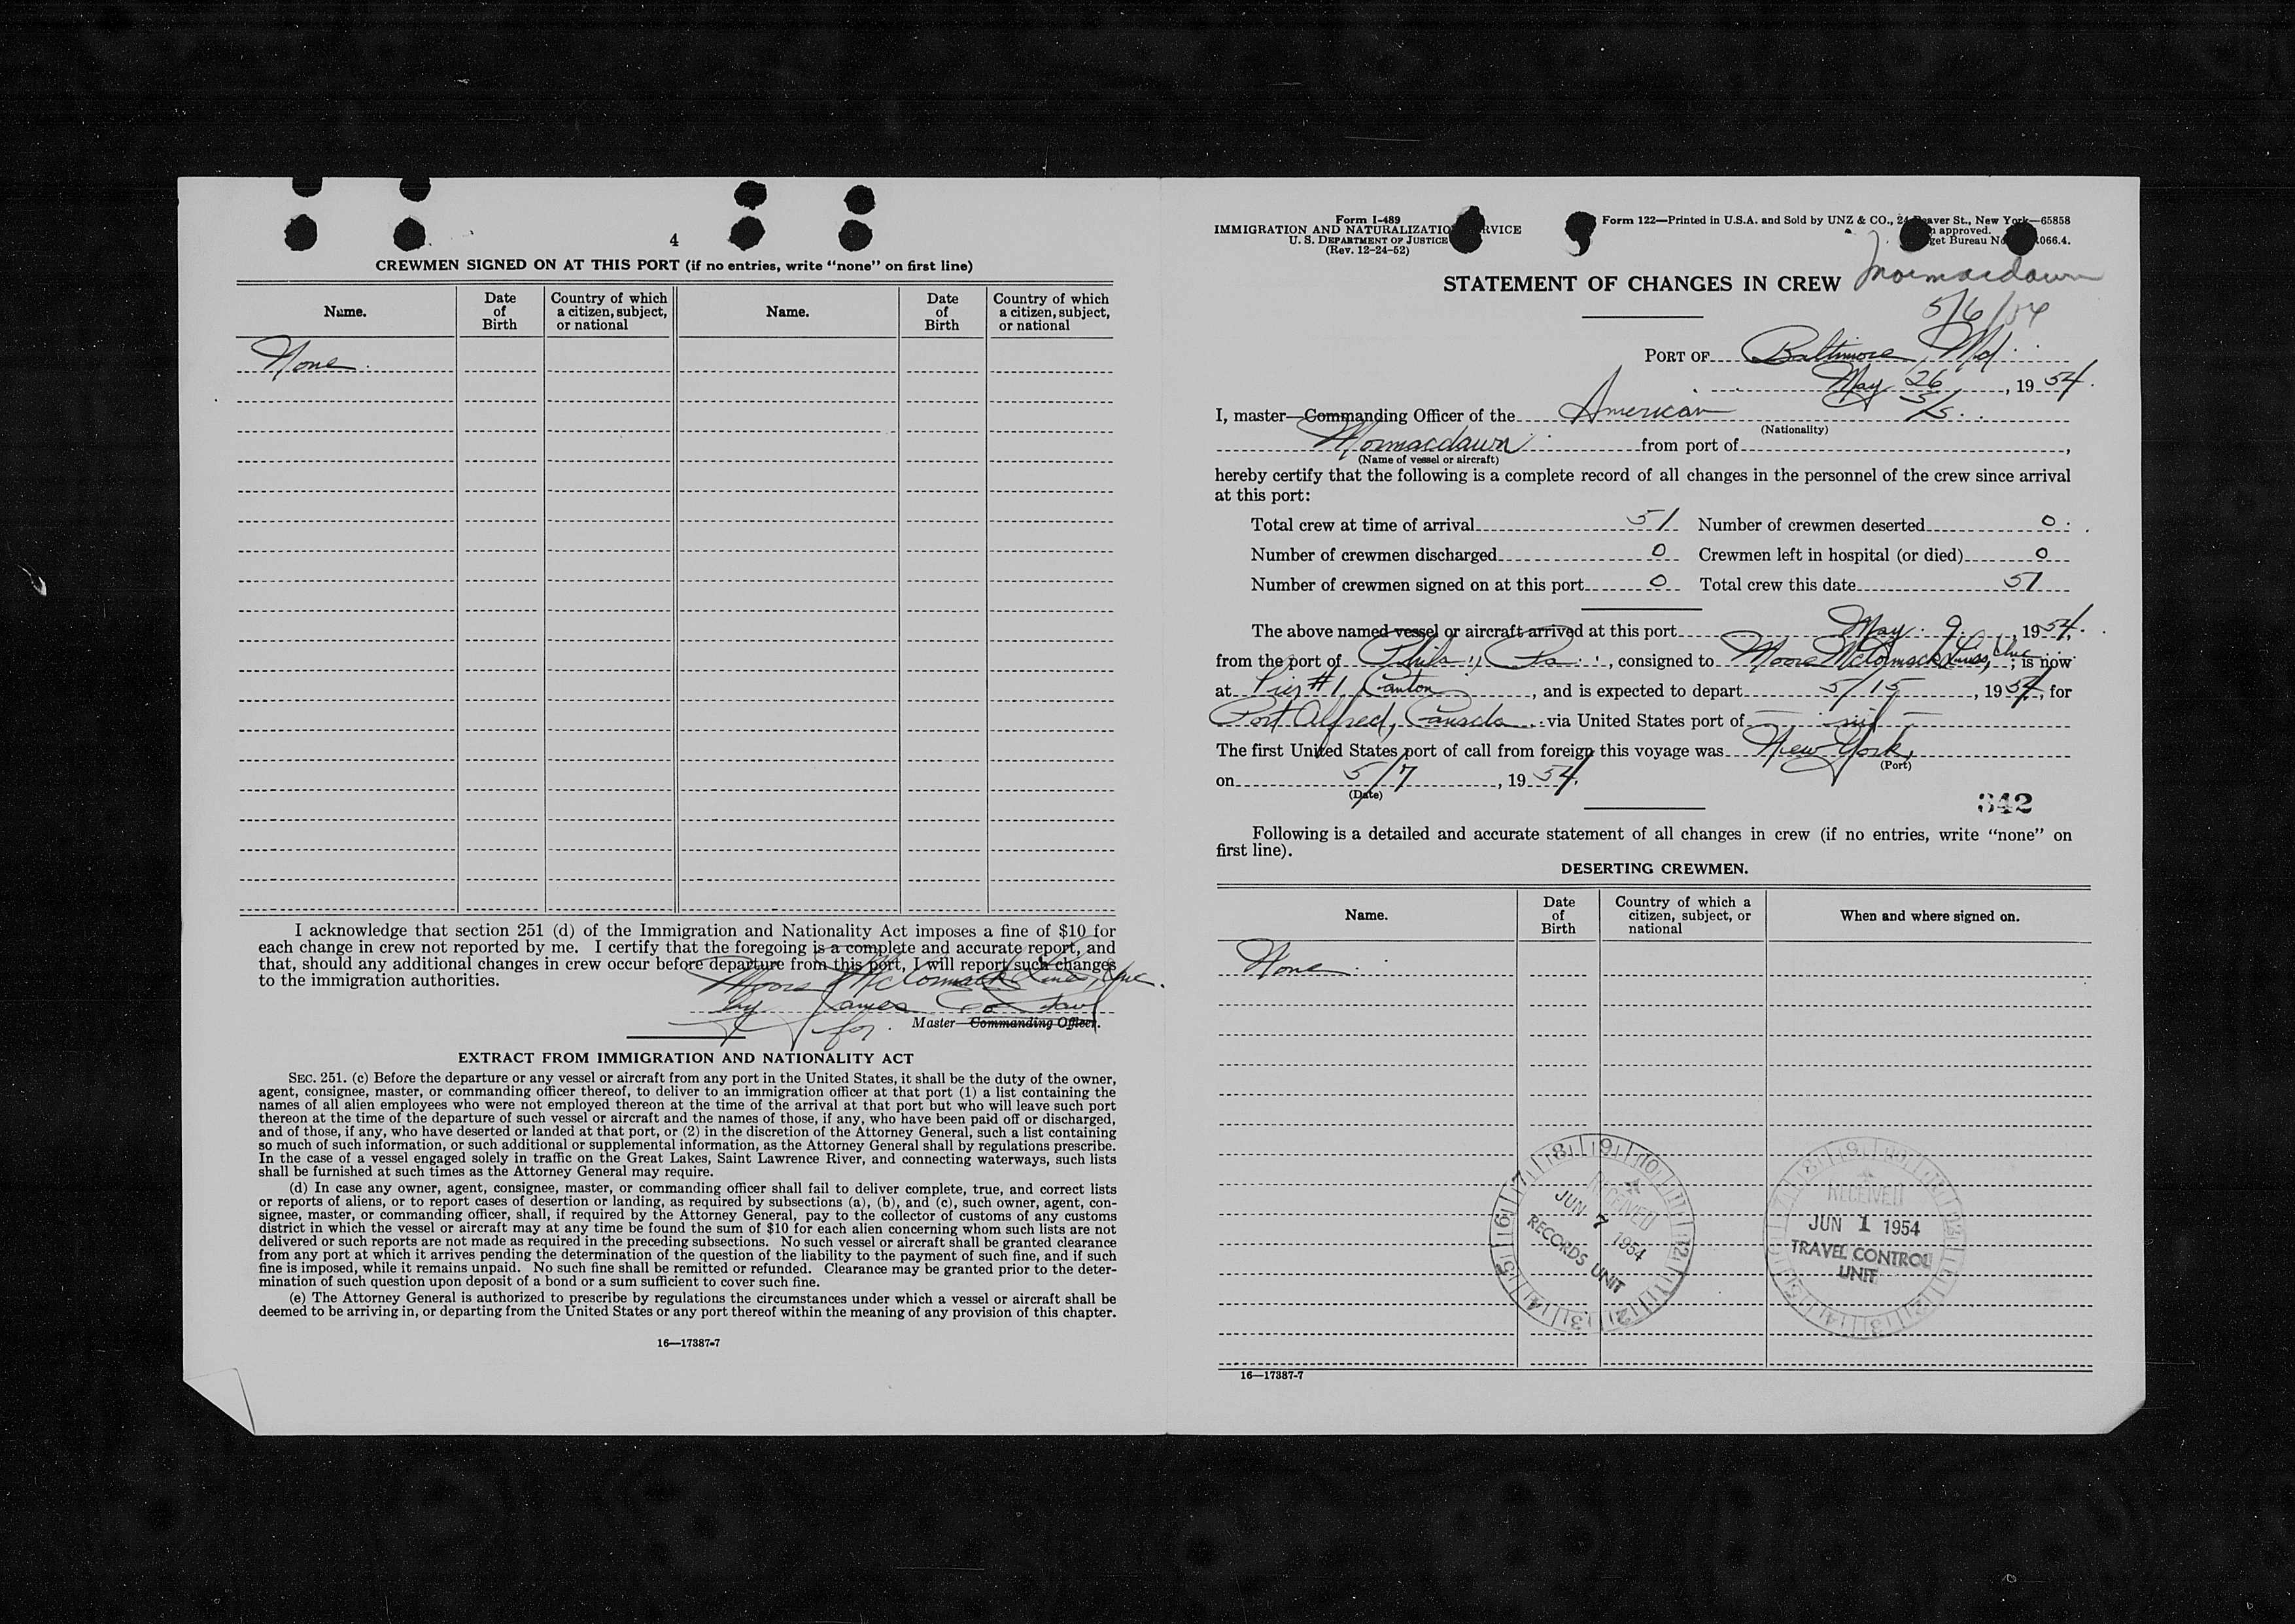 4
CREWMEN SIGNED ON AT THIS PORT (if no entries, write “none” on first line)
Name. Date of Birth Country of which a citizen, subject, or national Name. Date of Birth Country of which a citizen, subject, or national
None
I acknowledge that section 251 (d) of the Immigration and Nationality Act imposes a fine of $10 for
each change in crew not reported by me. I certify that the foregoing is a complete and accurate report, and
that, should any additional changes in crew occur before departure from this port, I will report such changes
to the immigration authorities.
Moore McCormack Lines, Inc.
by James
for Master—Commanding Officer.
EXTRACT FROM IMMIGRATION AND NATIONALITY ACT
SEC. 251. (c) Before the departure or any vessel or aircraft from any port in the United States, it shall be the duty of the owner,
agent, consignee, master, or commanding officer thereof, to deliver to an immigration officer at that port (1) a list containing the
names of all alien employees who were not employed thereon at the time of the arrival at that port but who will leave such port
thereon at the time of the departure of such vessel or aircraft and the names of those, if any, who have been paid off or discharged,
and of those, if any, who have deserted or landed at that port, or (2) in the discretion of the Attorney General, such a list containing
so much of such information, or such additional or supplemental information, as the Attorney General shall by regulations prescribe.
In the case of a vessel engaged solely in traffic on the Great Lakes, Saint Lawrence River, and connecting waterways, such lists
shall be furnished at such times as the Attorney General may require.
(d) In case any owner, agent, consignee, master, or commanding officer shall fail to deliver complete, true, and correct lists
or reports of aliens, or to report cases of desertion or landing, as required by subsections (a), (b), and (c), such owner, agent, con-
signee, master, or commanding officer, shall, if required by the Attorney General, pay to the collector of customs of any customs
district in which the vessel or aircraft may at any time be found the sum of $10 for each alien concerning whom such lists are not
delivered or such reports are not made as required in the preceding subsections. No such vessel or aircraft shall be granted clearance
from any port at which it arrives pending the determination of the question of the liability to the payment of such fine, and if such
fine is imposed, while it remains unpaid. No such fine shall be remitted or refunded. Clearance may be granted prior to the deter-
mination of such question upon deposit of a bond or a sum sufficient to cover such fine.
(e) The Attorney General is authorized to prescribe by regulations the circumstances under which a vessel or aircraft shall be
deemed to be arriving in, or departing from the United States or any port thereof within the meaning of any provision of this chapter.
16—17387-7
Form I-489
IMMIGRATION AND NATURALIZATIO RVICE
U. S. DEPARTMENT OF JUSTICE
(Rev. 12-24-52)
Form 122—Printed in U.S.A. and Sold by UNZ & CO., 24 eaver St., New York—65858
approved.
get Bureau No 066.4.
STATEMENT OF CHANGES IN CREW Mormacdawn
5/6/54
PORT OF Baltimore, Md.
May 26, 1954.
I, master—Commanding Officer of the American S/S.
(Nationality)
Mormacdawn from port of ,
(Name of vessel or aircraft)
hereby certify that the following is a complete record of all changes in the personnel of the crew since arrival
at this port:
Total crew at time of arrival 51 Number of crewmen deserted 0
Number of crewmen discharged 0 Crewmen left in hospital (or died) 0
Number of crewmen signed on at this port 0 Total crew this date 51
The above named vessel or aircraft arrived at this port May 9, 1954.
from the port of Phila., Pa., consigned to Moore McCormack Lines, Inc.; is now
at Pier #1 Canton, and is expected to depart 5/15, 1954, for
Port Alfred, Canada via United States port of — nil —
The first United States port of call from foreign this voyage was New York,
(Port)
on 5/7, 1954.
(Date)
342
Following is a detailed and accurate statement of all changes in crew (if no entries, write “none” on
first line).
DESERTING CREWMEN.
Name. Date of Birth Country of which a citizen, subject, or national When and where signed on.
None
RECEIVED
JUN 7 1954
RECORDS UNIT
RECEIVED
JUN 1 1954
TRAVEL CONTROL
UNIT
16—17387-7